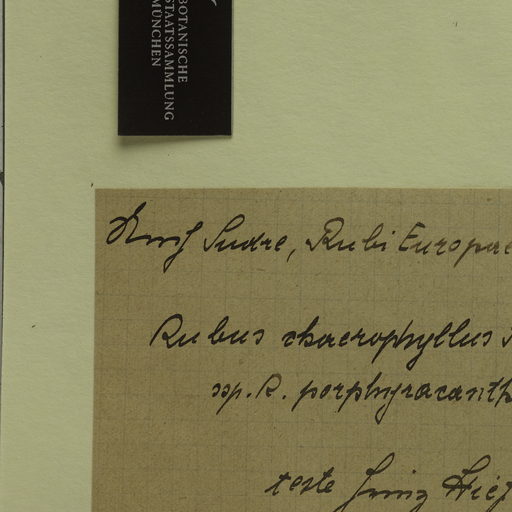 BOTANISCHE
STAATSSAMMLUNG
MÜNCHEN
Sudre, Rubi Europae
Rubus chaerophyllus
ssp. R. porphyracanth
teste